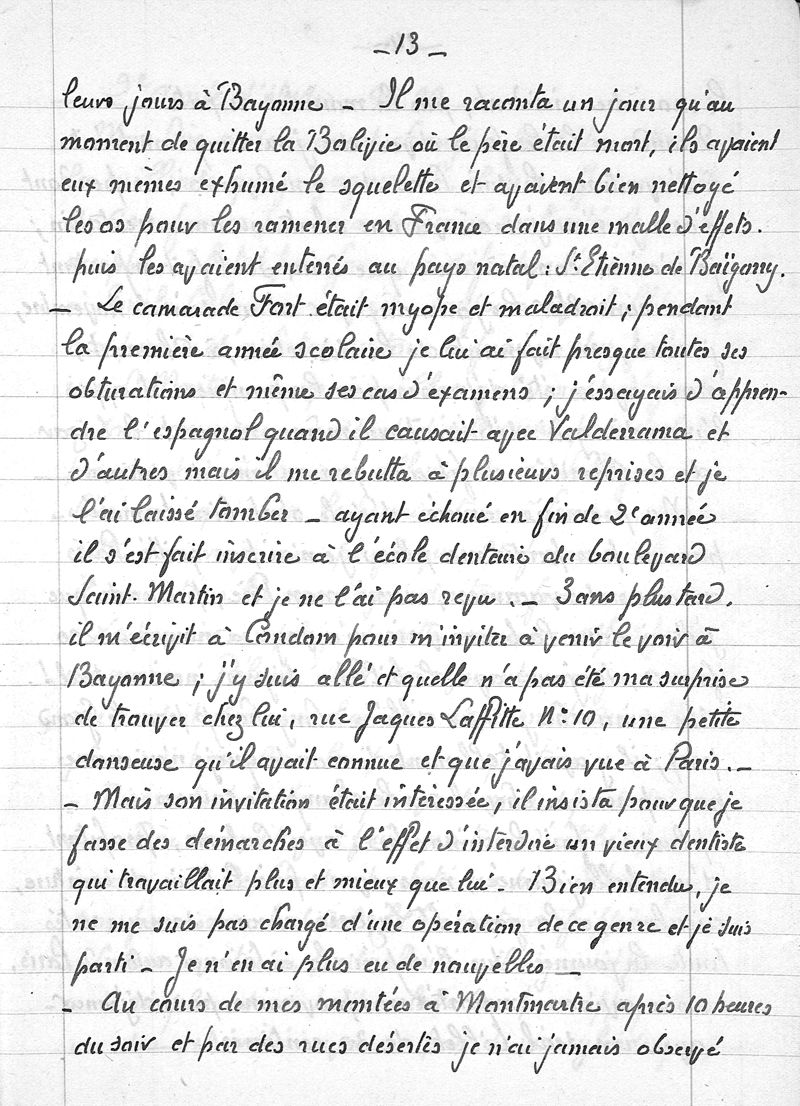 - 13 -
leurs jours à Bayonne - Il me raconta un jour qu'au
moment de quitter la Bolivie où le père était mort, ils avaient
eux mêmes exhumé le squelette et avaient bien nettoyé
les os pour les ramener en France dans une malle d'effets.
puis les avaient enterrés au pays natal : St Etienne de Baïgorry.
- Le camarade Fort était myope et maladroit ; pendant
la première année scolaire je lui ai fait presque toutes ses
obturations et même ses cas d'examens ; j'essayais d'appren-
dre l'espagnol quand il causait avec Valderrama et
d'autres mais il me rebutta à plusieurs reprises et je
l'ai laissé tomber - ayant échoué en fin de 2e année
il s'est fait inscrire à l'école dentaire du boulevard
Saint. Martin et je ne l'ai pas revu . - 3 ans plus tard.
il m'écrivit à Condom pour m'inviter à venir le voir à
Bayonne ; j'y suis allé et quelle n'a pas été ma surprise
de trouver chez lui, rue Jaques Laffitte N° 10, une petite
danseuse qu'il avait connue et que j'avais vue à Paris. -
- Mais son invitation était intéressée, il insista pour que je
fasse des démarches à l'effet d'interdire un vieux dentiste
qui travaillait plus et mieux que lui - Bien entendu, je
ne me suis pas chargé d'une opération de ce genre et je suis
parti - Je n'en ai plus eu de nouvelles -
- Au cours de mes montées à Montmartre après 10 heures
du soir et par des rues désertes je n'ai jamais observé